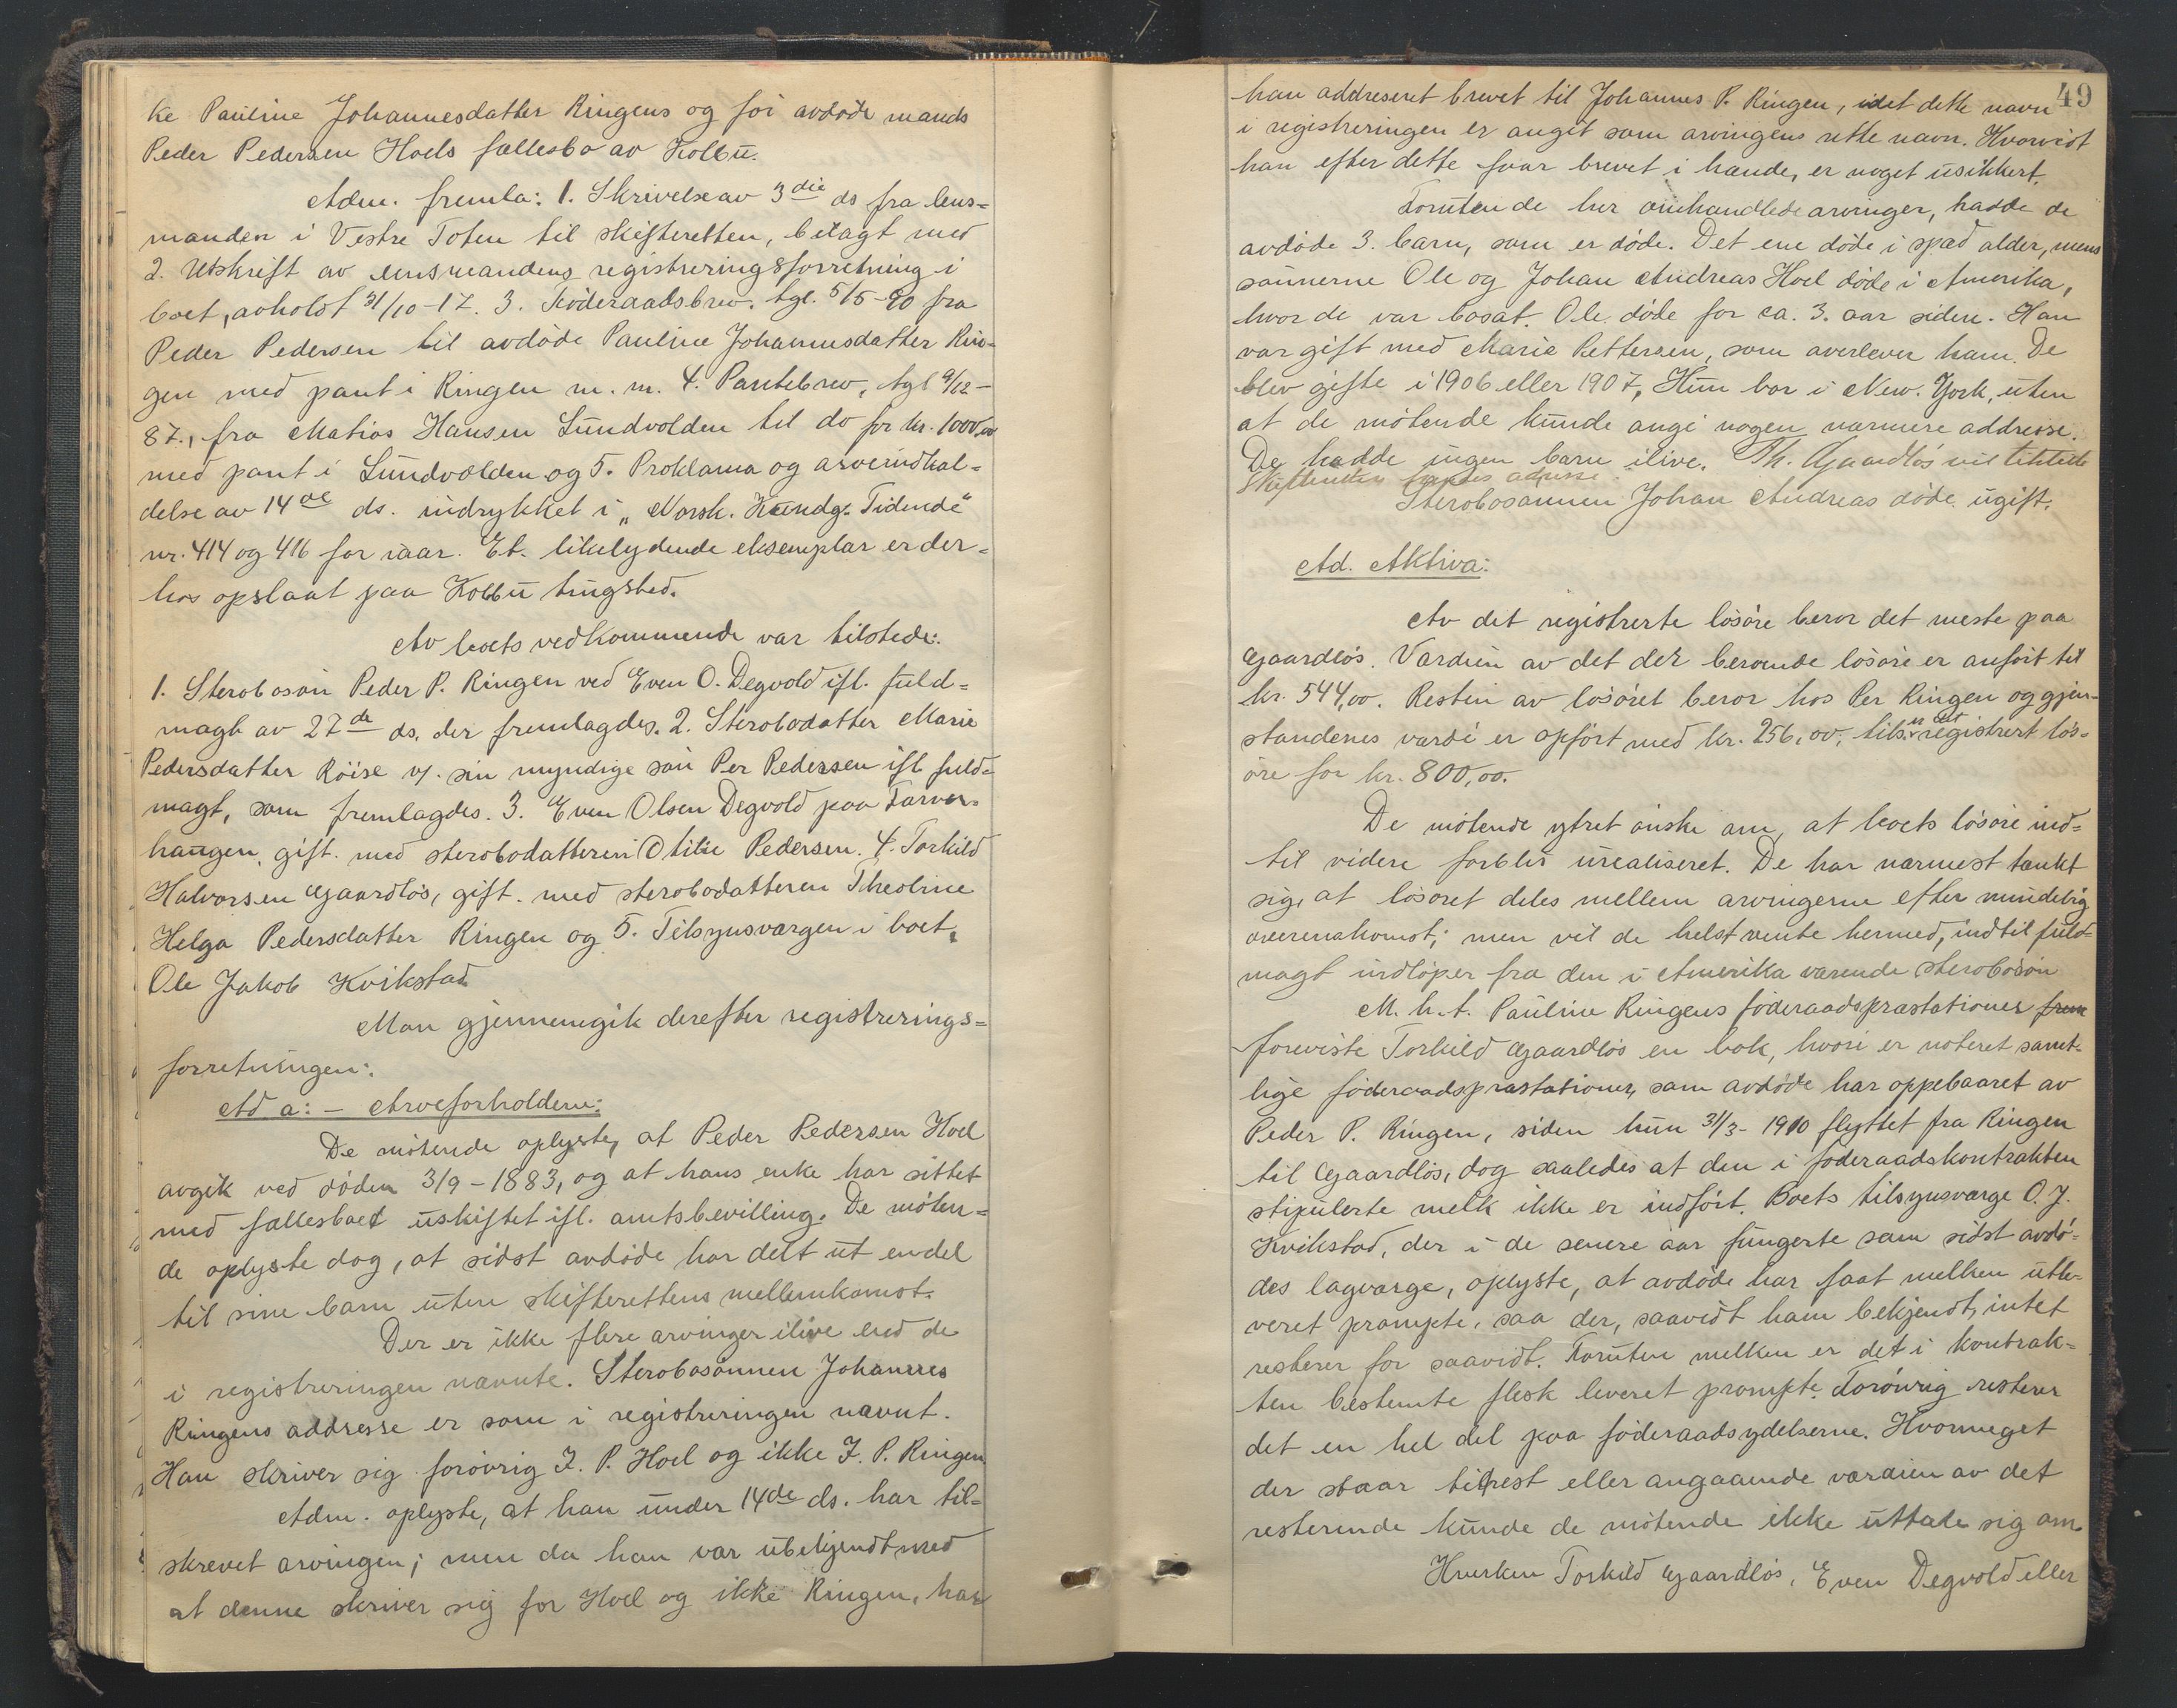 ke Pauline Johannesdatter Ringens og för avdöde mands
Peder Pedersen Hoels fællesbo av Kolbu.
Adm. fremla: 1. Skrivelse av 3die ds fra lens=
manden i Vestre Toten til skifteretten, bilagt med
2. Utskrift av lensmandens registreringsforretning i
boet, avholdt 31/10-17. 3. Föderaadsbrev, tgl. 5/5-90 fra
Peder Pedersen til avdöde Pauline Johannesdatter Rin=
gen med pant i Ringen m. m. 4. Pantebrev, tgl 9/12-
87., fra Matias Hansen Lundvolden til do for kr. 1000,00
med pant i Lundvolden og 5. Proklama og arveindkal=
delse av 14de ds. indrykket i „Norsk. Kundg. Tidende"
nr. 414 og 416 for iaar. Et. likelydende eksemplar er der=
hos opslaat paa Kolbu tingsted.
Av boets vedkommende var tilstede:
1. Sterbosön Peder P. Ringen ved Even O. Degvold ifl. fuld=
magt av 27de ds, der fremlagdes. 2. Sterbodatter Marie
Pedersdatter Röise v/. sin myndige sön Per Pedersen ifl fuld=
magt, som fremlagdes. 3. Even Olsen Degvold paa Tarver=
haugen, gift. med sterbodatteren Otilie Pedersen. 4. Torkild
Halvorsen Gaardlös, gift. med sterbodatteren Theoline
Helga Pedersdatter Ringen og 5. Tilsynsværgen i boet,
Ole Jakob Kvikstad.
Man gjennemgik derefter registrerings=
forretningen:
Ad a: - Arveforholdene:
De mötende oplyste, at Peder Pedersen Hoel
avgik ved döden 3/9-1883, og at hans enke har sittet
med fællesboet uskiftet ifl. amtsbevilling. De möten=
de oplyste dog, at sidst avdöde har delt ut endel
til sine barn uten skifterettens mellemkomst.
Der er ikke flere arvinger ilive end de
i registreringen nævnte. Sterbosönnen Johannes
Ringens addresse er som i registreringen nævnt.
Han skriver sig forövrig J. P. Hoel og ikke J. P. Ringen
Adm. oplyste, at han under 14de ds. har til=
skrevet arvingen; men da han var ubekjendt med
at denne skriver sig for Hoel og ikke Ringen, har
49
han addreseret brevet til Johannes P. Ringen, idet dette navn
i registreringen er angit som arvingens rette navn. Hvorvidt
han efter dette faar brevet i hænde, er noget usikkert.
Foruten de her omhandlede arvinger, hadde de
avdöde 3. barn, som er döde. Det ene döde i spæd alder, mens
sönnerne Ole og Johan Andreas Hoel döde i Amerika,
hvor de var bosat. Ole döde for ca. 3. aar siden. Han
var gift med Marie Pettersen, som averlever ham. De
blev gifte i 1906 eller 1907, Hun bor i New. York, uten
at de mötende kunde angi nogen nærmere addresse.
De hadde ingen barn ilive. Th. Gaardlös vil tilstille
Skifteretten hendes adresse.
Sterbosönnen Johan Andreas döde ugift.
Ad. Aktiva:
Av det registrerte lösöre beror det meste paa
Gaardlös. Værdien av det der beroende lösöre er anfört til
kr. 544,00. Resten av lösöret beror hos Per Ringen og gjen-
standenes værdi er opfört med kr. 256,00, tils. er det registrert lös=
öre for kr. 800,00.
De mötende ytret önske om, at boets lösöre ind=
til videre forblir urealiseret. De har nærmest tænkt
sig, at lösöret deles mellem arvingerne efter mindelig
overenskomst; men vil de helst vente hermed, indtil fuld=
magt indlöper fra den i Amerika værende sterbosön
M. h. t. Pauline Ringens föderaadspræstationer frem
foreviste Torkild Gaardlös en bok, hvori er noteret samt=
lige föderaadspræstationer, som avdöde har oppebaaret av
Peder P. Ringen, siden hun 31/3-1910 flyttet fra Ringen
til Gaardlös, dog saaledes at den i föderaadskontrakten
stipulerte melk ikke er indfört. Boets tilsynsværge O. J.
Kvikstad, der i de senere aar fungerte som sidst avdö=
des lagværge, oplyste, at avdöde har faat melken utle=
veret prompte, saa der, saavidt ham bekjendt, intet
resterer for saavidt. Foruten melken er det i kontrak=
ten bestemte flesk leveret prompte. Forövrig resterer
det en hel del paa föderaadsydelserne. Hvormeget
der staar tilrest eller angaaende værdien av det
resterende kunde de mötende ikke uttale sig om.
Hverken Torkild Gaardlös, Even Degvold eller